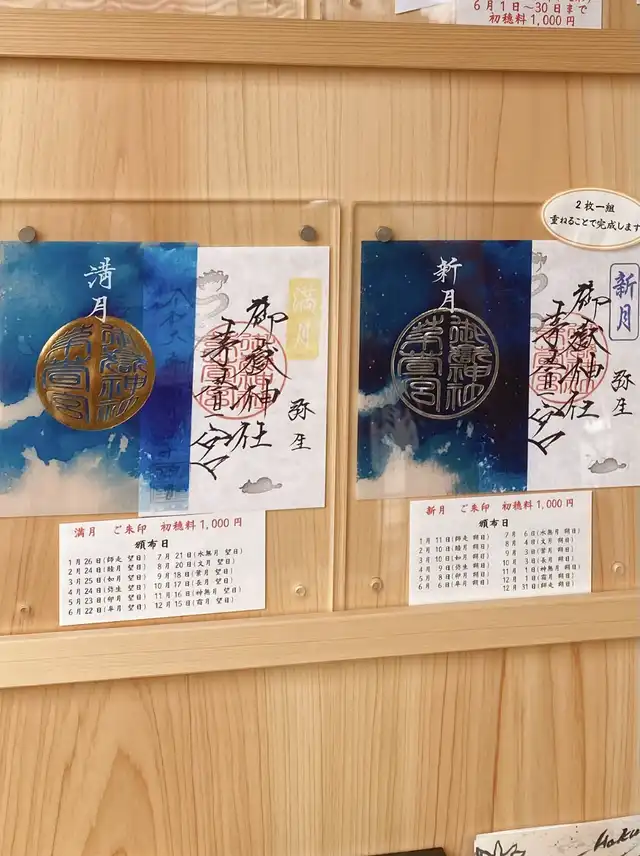 6月1日～30日まで
初穂料1,000円
2枚一組
重ねることで完成します
満月
満月
御嶽神社
弥生
新月
新月
御嶽神社
弥生
満月 ご朱印 初穂料1,000円
頒布日
1月26日(師走 望日)
2月24日(睦月 望日)
3月25日(如月 望日)
4月24日(弥生 望日)
5月23日(卯月 望日)
6月22日(皐月 望日)
7月21日(水無月 望日)
8月20日(文月 望日)
9月18日(葉月 望日)
10月17日(長月 望日)
11月16日(神無月 望日)
12月15日(霜月 望日)
新月 ご朱印 初穂料1,000円
頒布日
1月11日(師走 朔日)
2月10日(睦月 朔日)
3月10日(如月 朔日)
4月9日(弥生 朔日)
5月8日(卯月 朔日)
6月6日(皐月 朔日)
7月6日(水無月 朔日)
8月4日(文月 朔日)
9月3日(葉月 朔日)
10月3日(長月 朔日)
11月1日(神無月 朔日)
12月1日(霜月 朔日)
12月31日(師走 朔日)